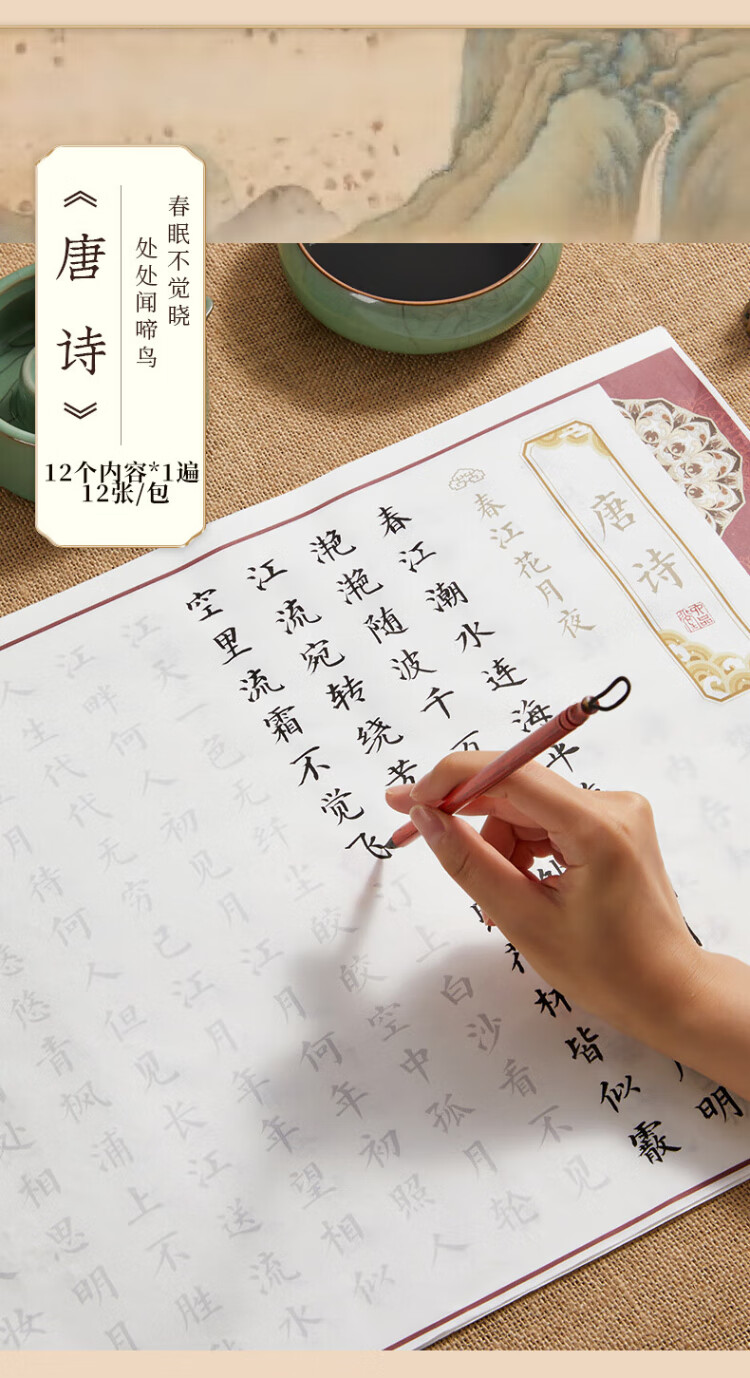 《唐诗》
春眠不觉晓
处处闻啼鸟
12个内容*1遍
12张/包
唐诗
春江花月夜
春江潮水连海平
明
滟滟随波千万
江流宛转绕芳
林皆似霰
空里流霜不觉飞汀上白沙看不见
江天一色无纤尘皎皎空中孤月轮
江畔何人初见月江月何年初照人
人生代代无穷已江月年年望相似
月待何人但见长江送流水
悠悠青枫浦上不胜
处相思明月
妆